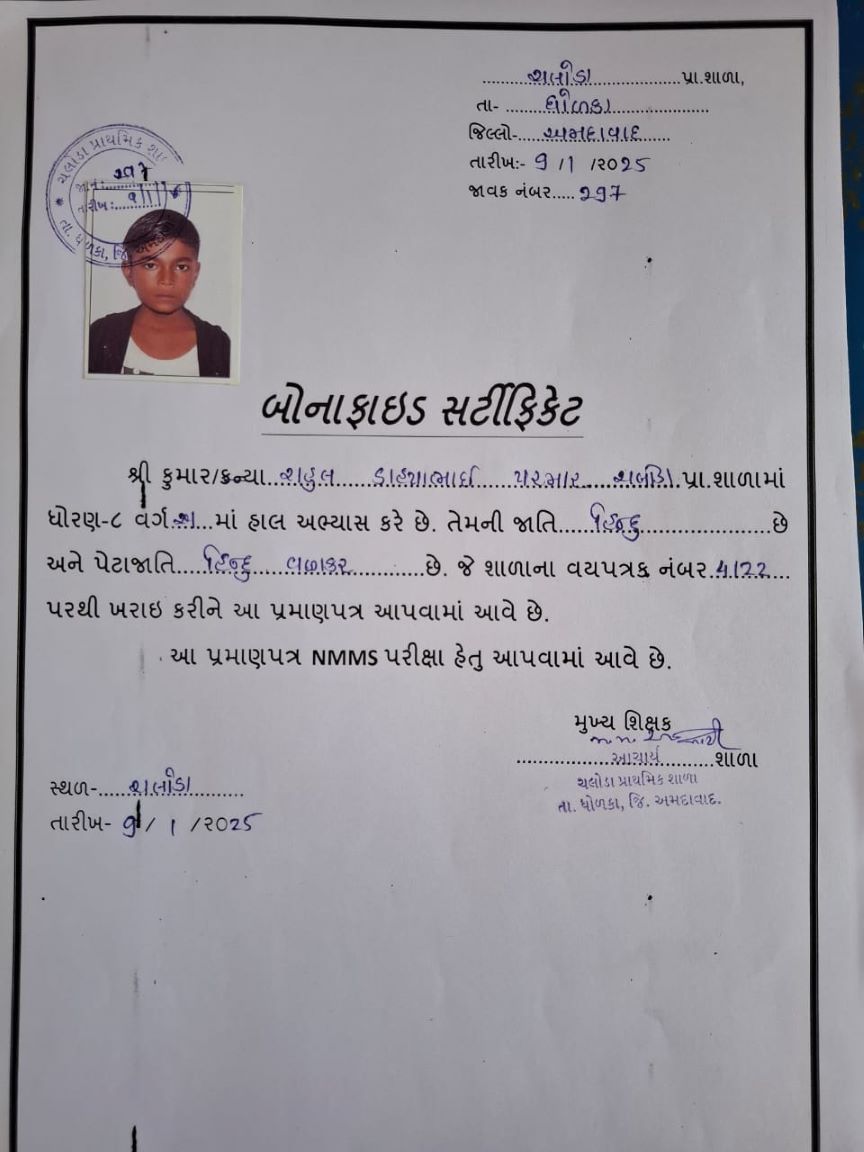 ચલોડા પ્રા.શાળા,
તા- ધોળકા
જિલ્લો- અમદાવાદ
તારીખ:- ૭/૧/૨૦25
જાવક નંબર..... ૨૭7
ચલોડા પ્રાથમિક શા
જા.નં: ૨૭7
તારીખ:
તા. ધોળકા, જિ. અમદા
બોનાફાઇડ સર્ટીફિકેટ
શ્રી કુમાર/કન્યા રાહુલ ડાહ્યાભાઈ પરમાર ચલોડા પ્રા.શાળામાં
ધોરણ-૮ વર્ગ અ માં હાલ અભ્યાસ કરે છે. તેમની જાતિ હિન્દુ છે
અને પેટાજાતિ હિન્દુ વણકર છે. જે શાળાના વયપત્રક નંબર 4122
પરથી ખરાઇ કરીને આ પ્રમાણપત્ર આપવામાં આવે છે.
આ પ્રમાણપત્ર NMMS પરીક્ષા હેતુ આપવામાં આવે છે.
મુખ્ય શિક્ષક
આચાર્ય શાળા
ચલોડા પ્રાથમિક શાળા
તા. ધોળકા, જિ. અમદાવાદ.
સ્થળ- ચલોડા
તારીખ- ૭/૧/૨૦25